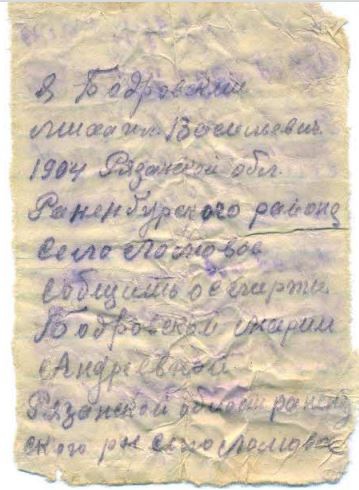 я Бодровский
михаил. Васильевич
1904 Рязанской обл.
Раненбургского района
село Ломовое
Сообщить о смерти
Бодровской марии
Андреевной
Рязанской област раненб
ского рн село ломовое